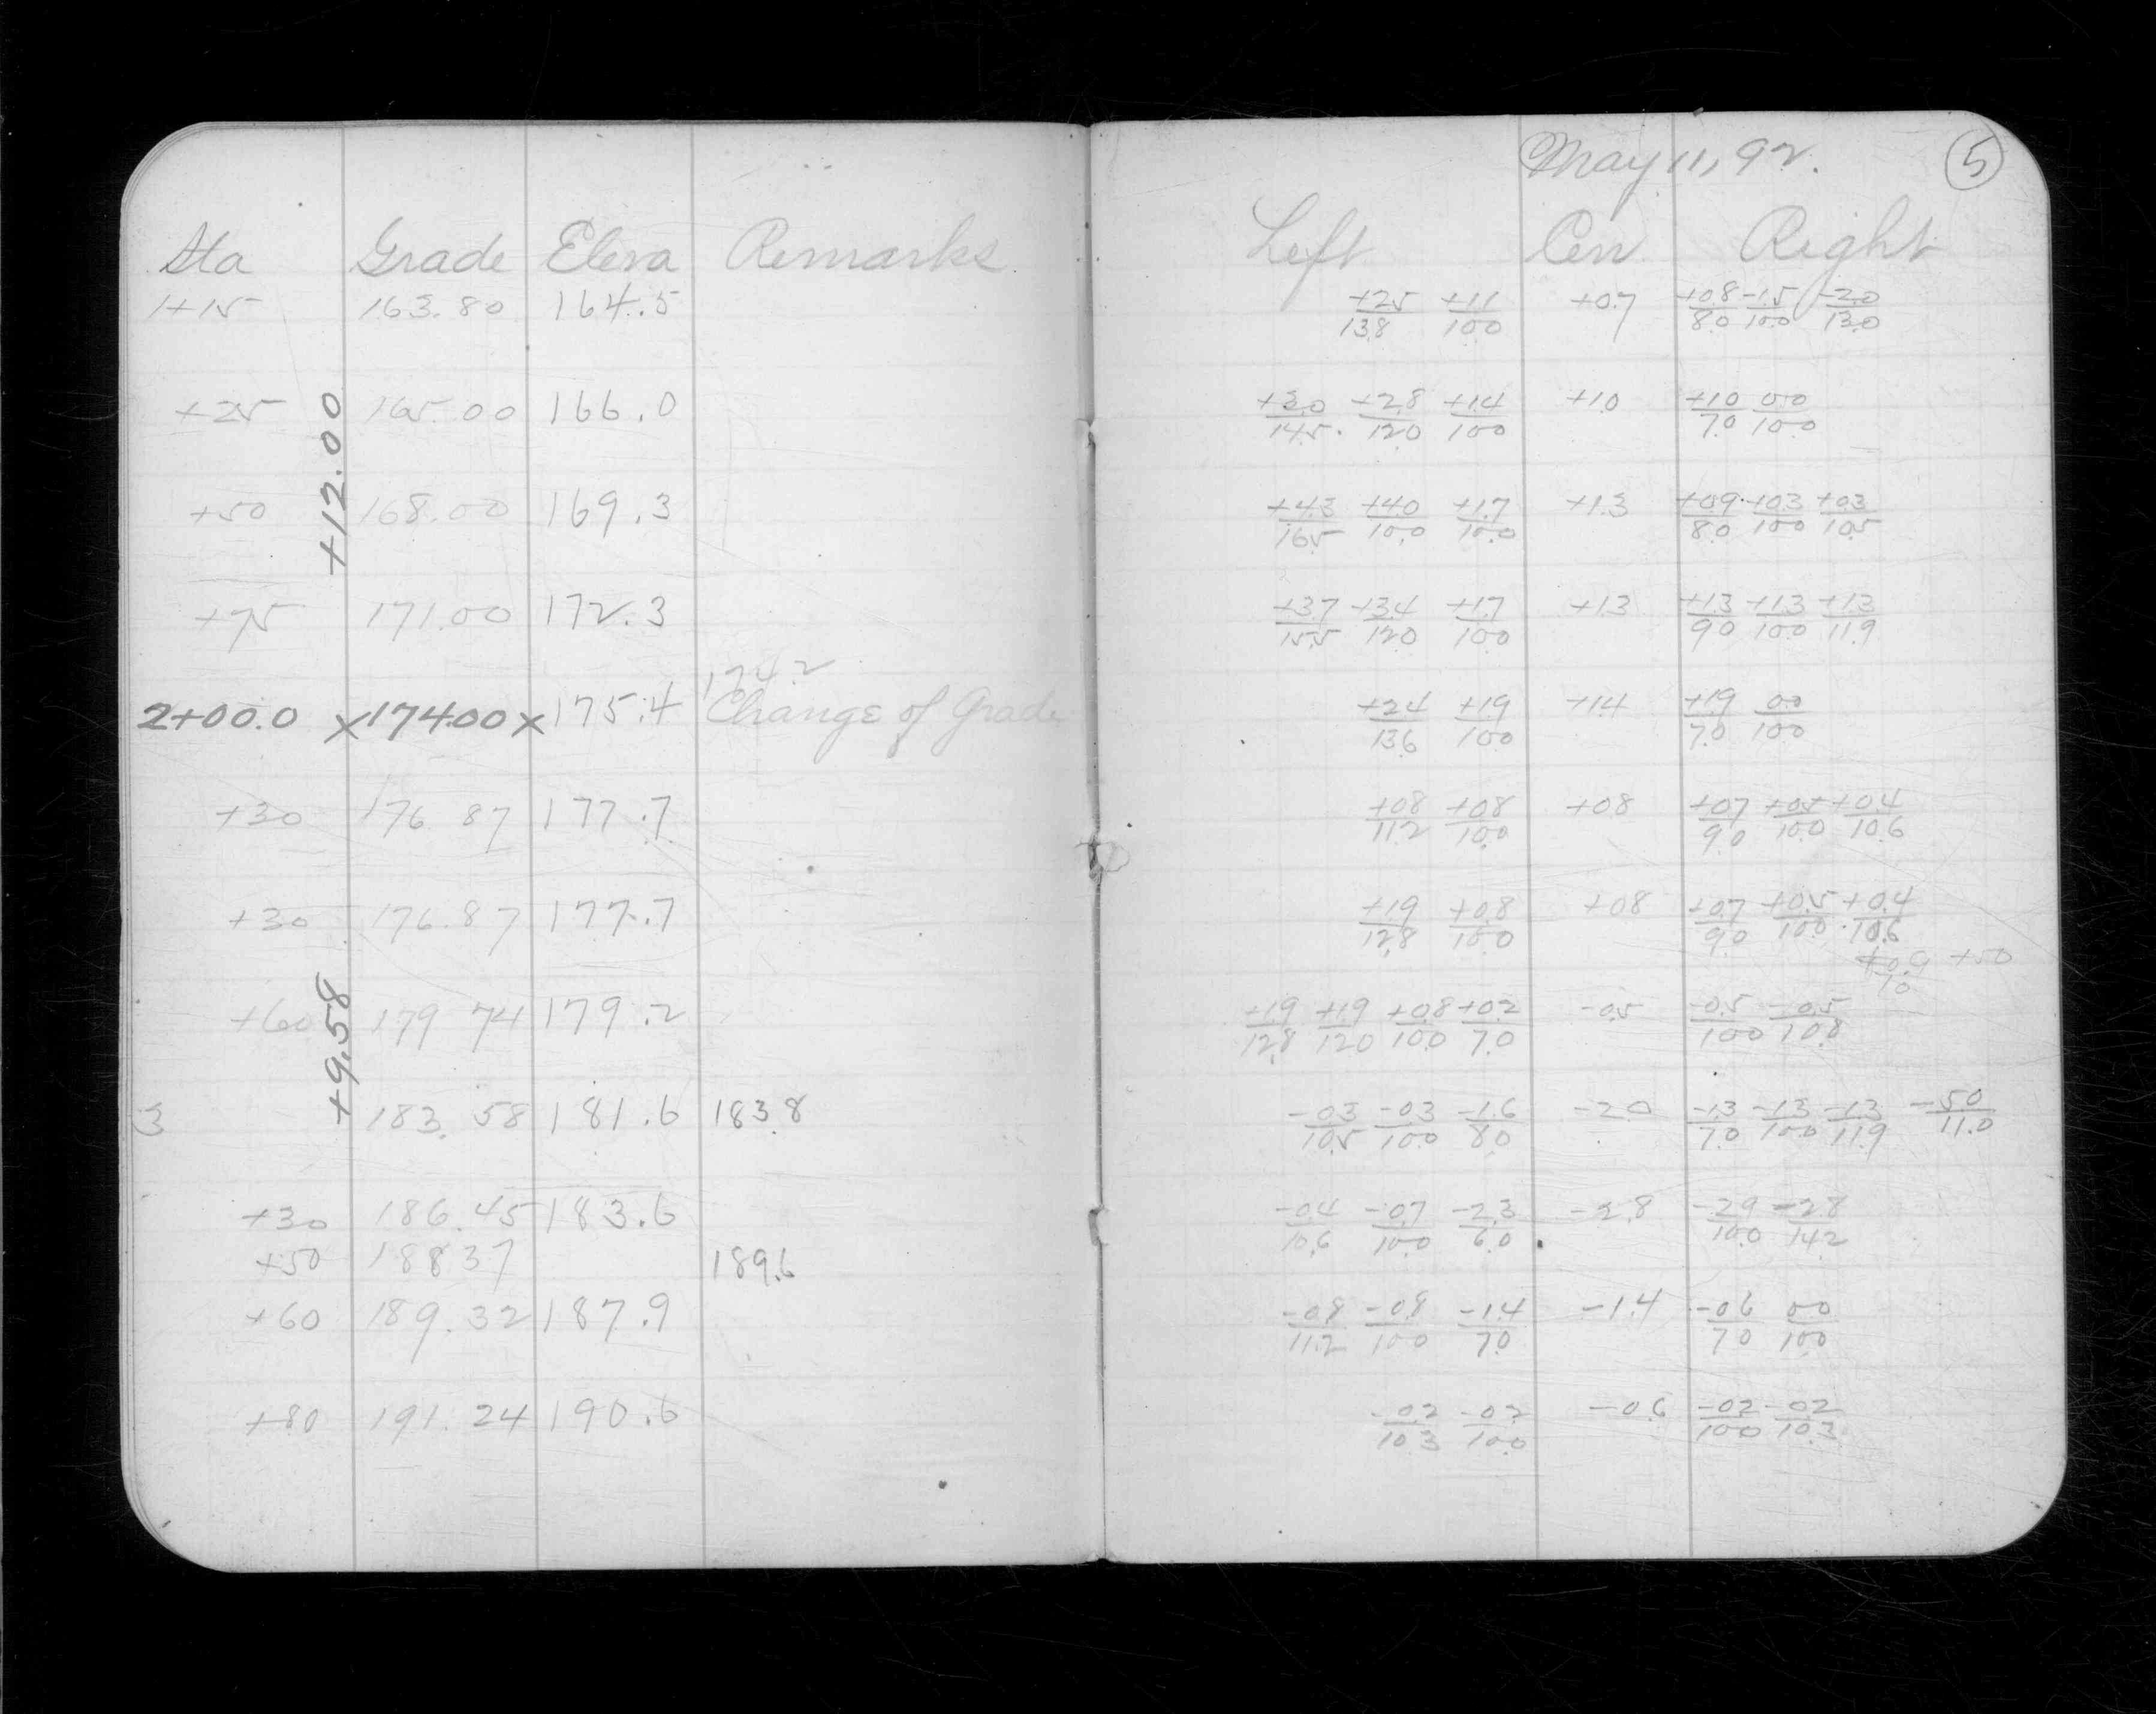 May 11, 92. 5
Sta Grade Eleva Remarks Left Cen Right
1+15 163.80 164.5 +2.5/13.8 +1.1/10.0 +0.7 +0.8/8.0 -1.5/10.0 -2.0/13.0
+25 165.00 166.0 +3.0/14.5 +2.8/12.0 +1.4/10.0 +1.0 +1.0/7.0 0.0/10.0
+12.00
+50 168.00 169.3 +4.3/16.5 +4.0/10.0 +1.7/10.0 +1.3 +0.9/8.0 +0.3/10.0 +0.3/10.5
+75 171.00 172.3 +3.7/15.5 +3.4/12.0 +1.7/10.0 +1.3 +1.3/9.0 +1.3/10.0 +1.3/11.9
174.2
2+00.0 x174.00x 175.4 Change of Grade +2.4/13.6 +1.9/10.0 +1.4 +1.9/7.0 0.0/10.0
+30 176.87 177.7 +0.8/11.2 +0.8/10.0 +0.8 +0.7/9.0 +0.5/10.0 +0.4/10.6
+30 176.87 177.7 +1.9/12.8 +0.8/10.0 +0.8 +0.7/9.0 +0.5/10.0 +0.4/10.6
+0.9/10 +50
+60 179.74 179.2 +1.9/12.8 +1.9/12.0 +0.8/10.0 +0.2/7.0 -0.5 -0.5/10.0 -0.5/10.8
+9.58
3 183.58 181.6 183.8 -0.3/10.5 -0.3/10.0 -1.6/8.0 -2.0 -1.3/7.0 -1.3/10.0 -1.3/11.9 -5.0/11.0
+30 186.45 183.6 -0.4/10.6 -0.7/10.0 -2.3/6.0 -2.8 -2.9/10.0 -2.8/14.2
+50 188.37 189.6
+60 189.32 187.9 -0.8/11.2 -0.8/10.0 -1.4/7.0 -1.4 -0.6/7.0 0.0/10.0
+80 191.24 190.6 -0.2/10.3 -0.2/10.0 -0.6 -0.2/10.0 -0.2/10.3